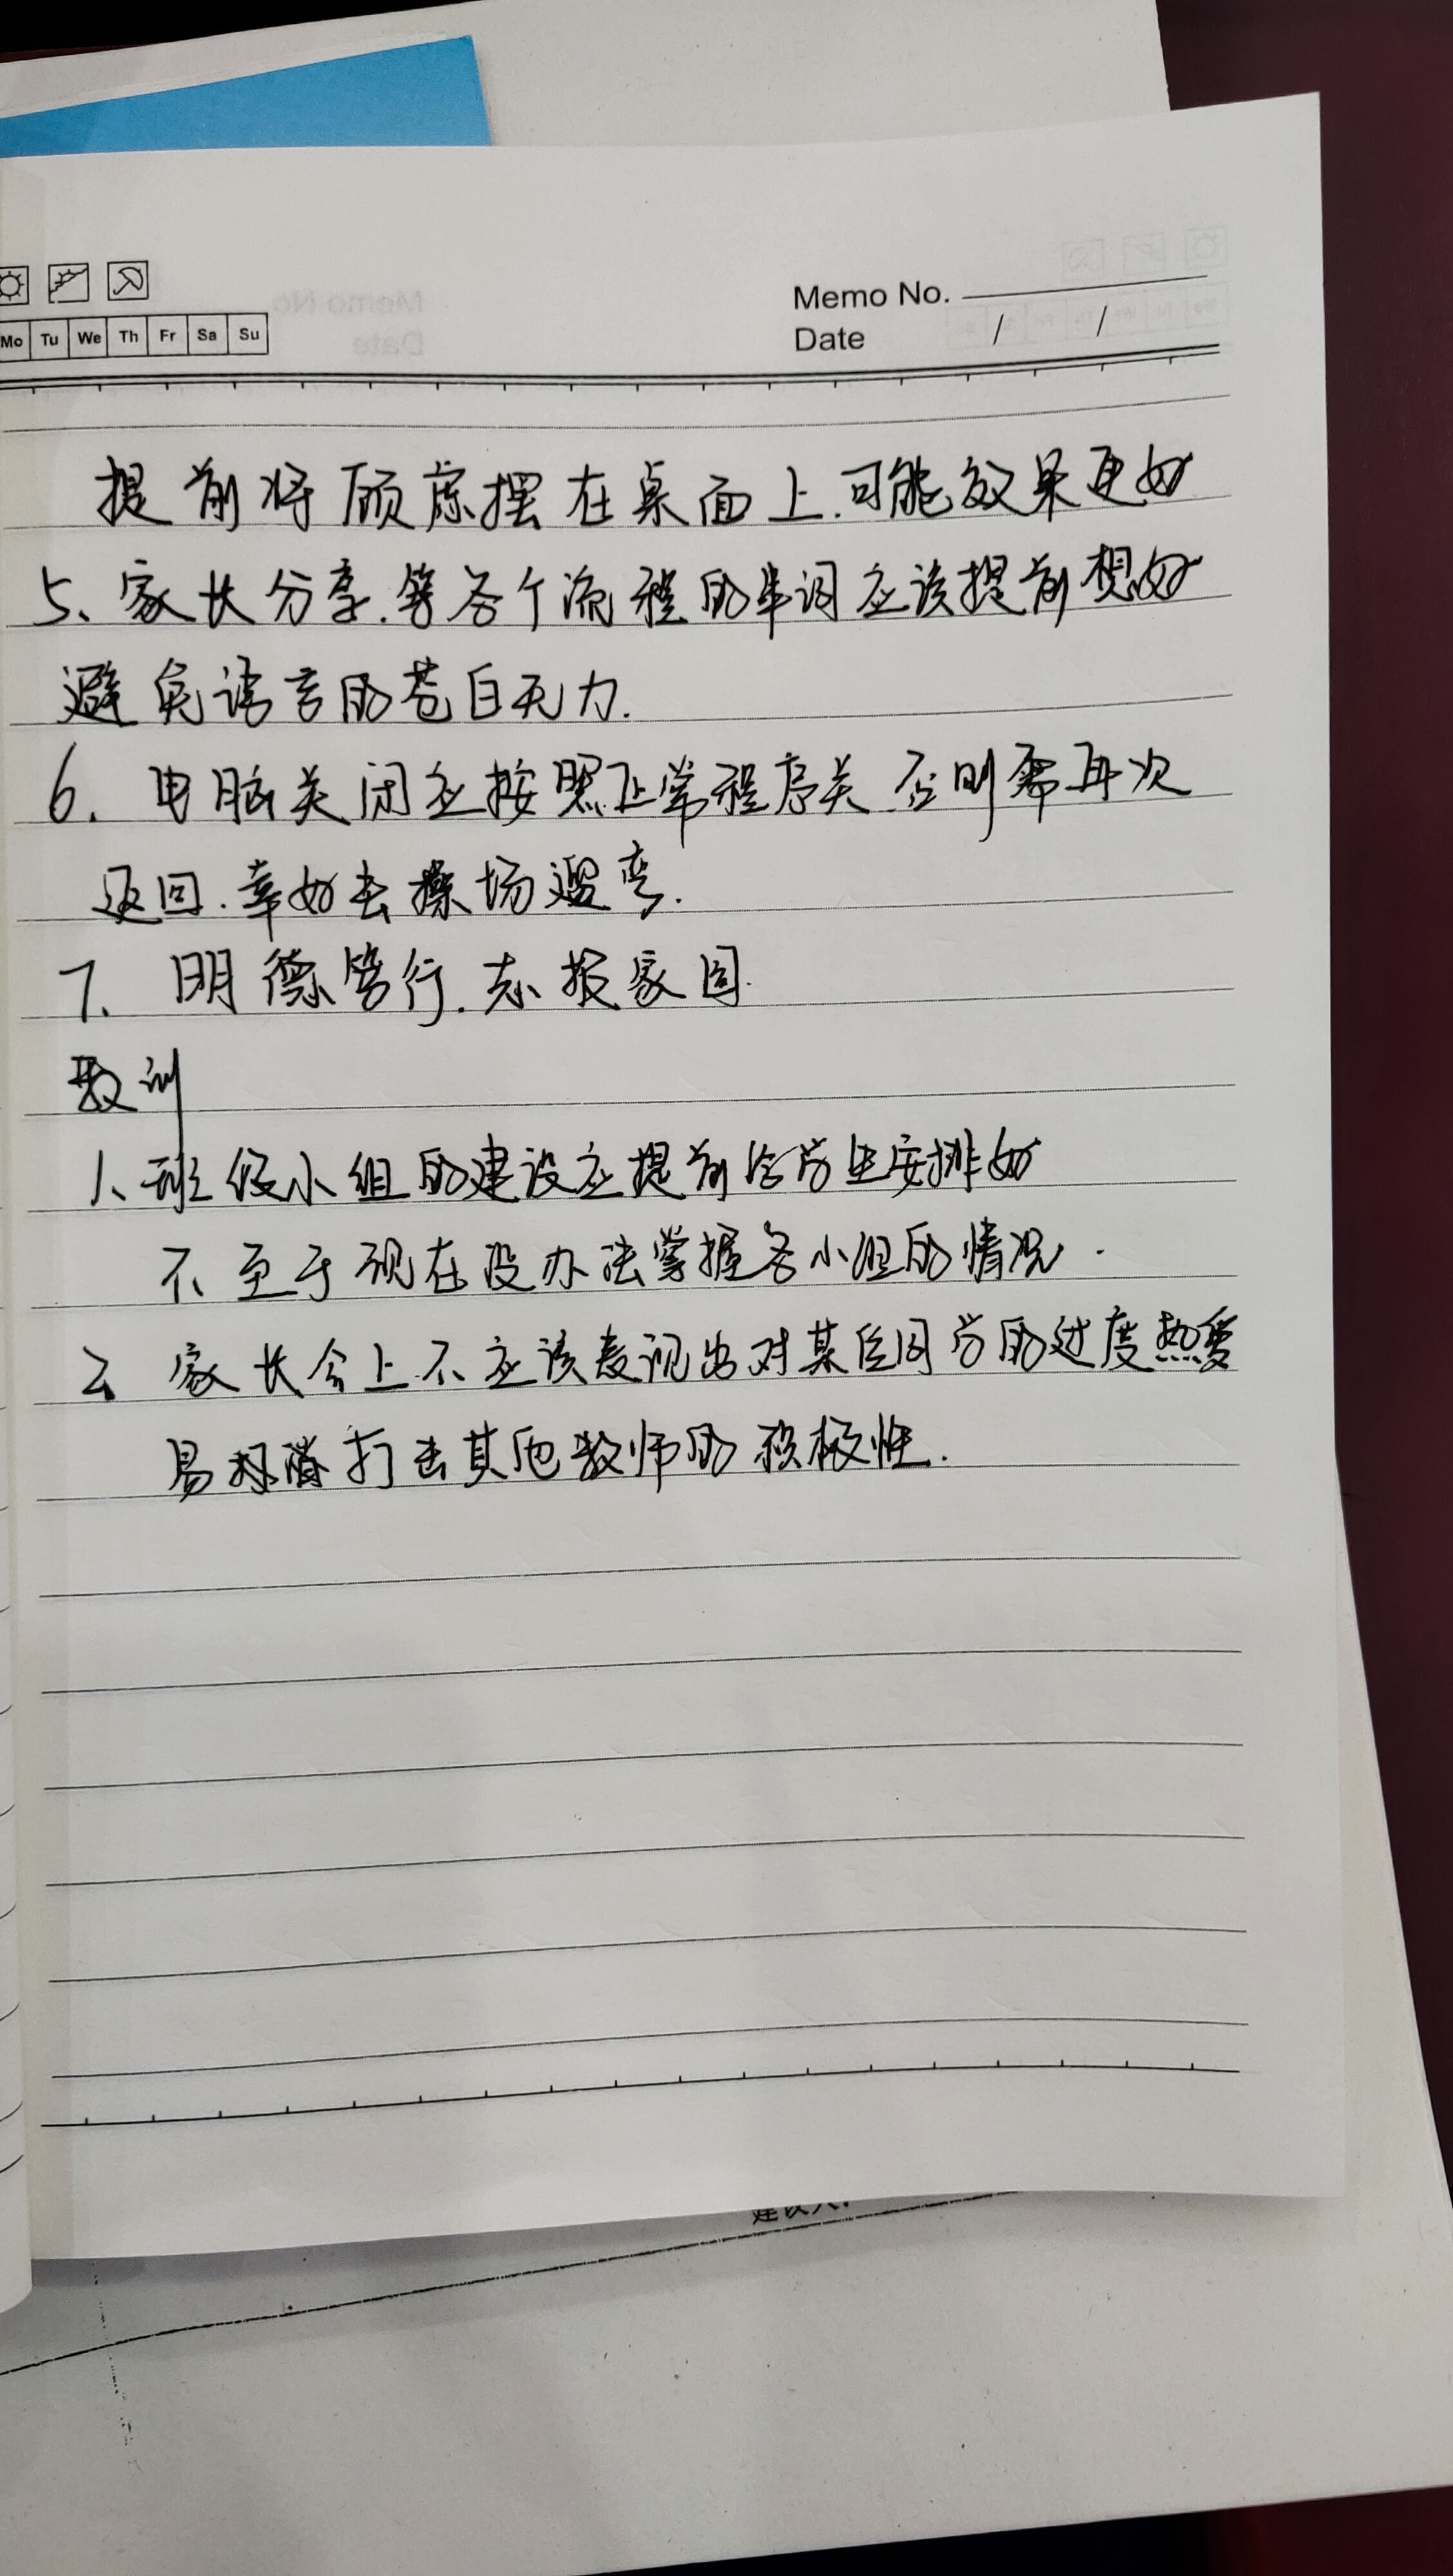 Memo No.
Mo Tu We Th Fr Sa Su
Date / /
提前将顾虑摆在桌面上.可能效果更好
5、家长分享.等各个流程的串词应该提前想好
避免语言的苍白无力.
6. 电脑关闭应按照正常程序关 否则需再次
返回.幸好去操场遛弯.
7. 明德笃行.志报家国.
教训
1、班级小组的建设应提前给学生安排好
不至于现在没办法掌握各小组的情况.
2 家长会上不应该表现出对某位同学的过度热爱
易打击其他教师的积极性.
建议人: